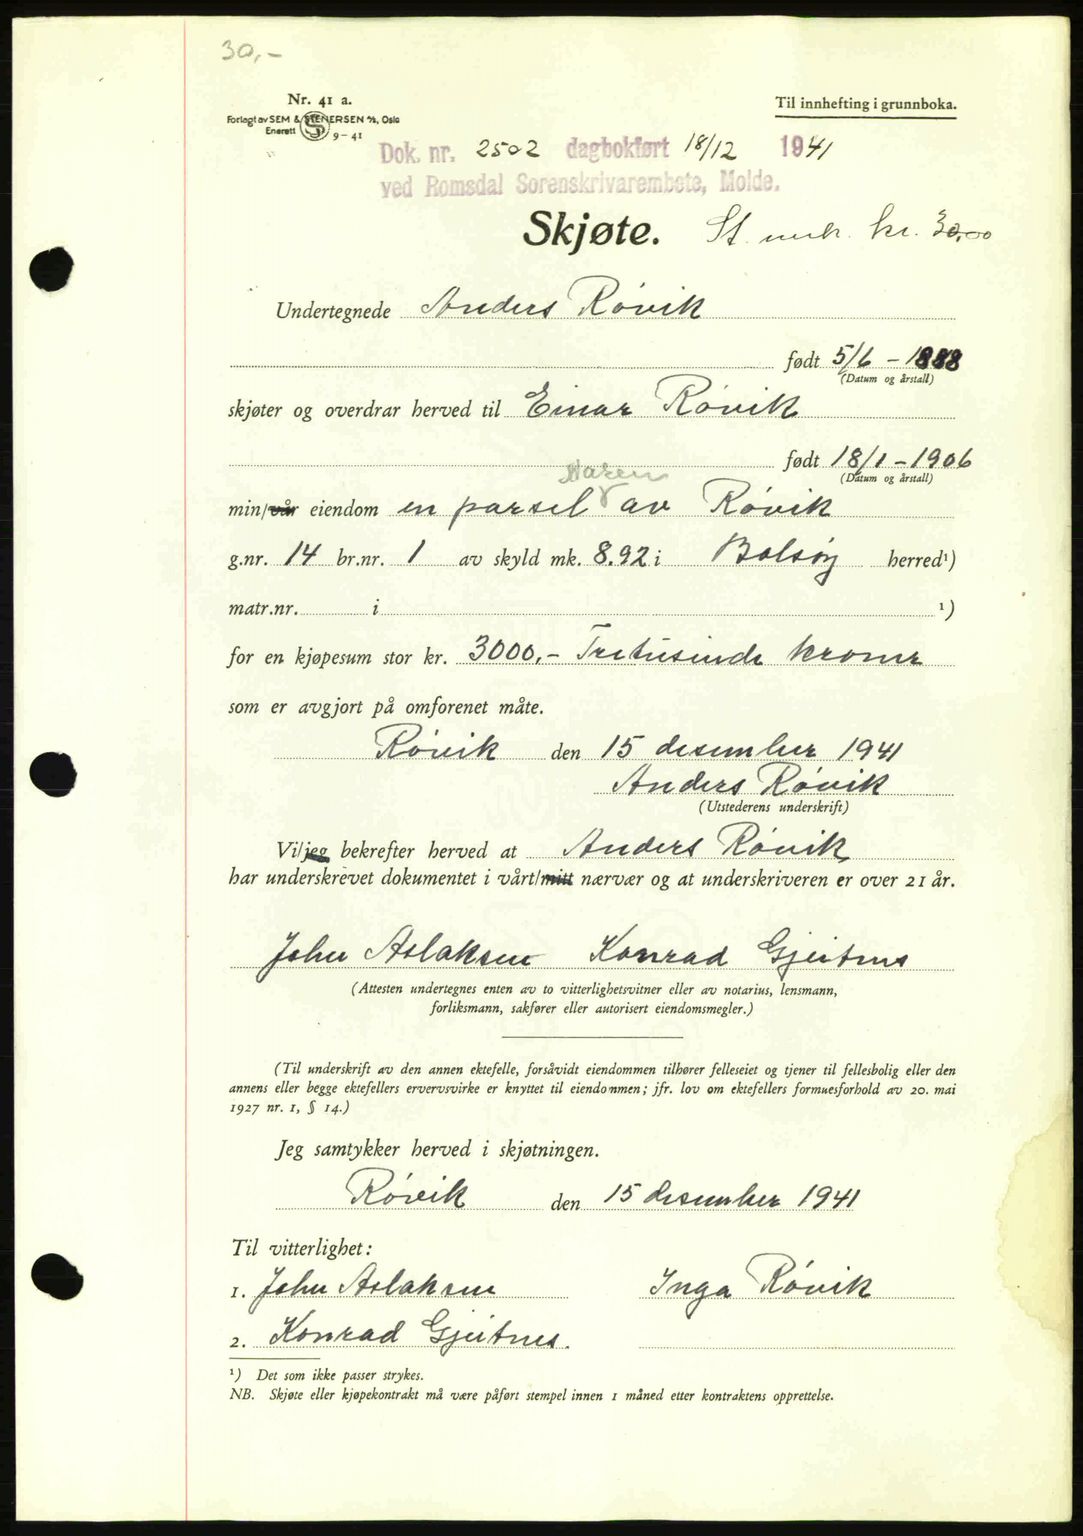 30,-
Nr. 41 a.
Forlagt av SEM & STENERSEN A/S, Oslo
Enerett 9-41
Til innhefting i grunnboka.
Dok. nr. 2502 dagbokført 18/12 1941
ved Romsdal Sorenskrivarembete, Molde.
Skjøte. St. merk. kr. 30,00
Undertegnede Anders Røvik
født 5/6 - 1888
(Datum og årstall)
skjøter og overdrar herved til Einar Røvik
født 18/1 - 1906
(Datum og årstall)
min/vår eiendom en parsel av Røvik
g.nr. 14 br.nr. 1 av skyld mk. 8.92 i Bolsøy herred¹)
matr.nr. i ¹)
for en kjøpesum stor kr. 3000,- Tretusinde kroner
som er avgjort på omforenet måte.
Røvik den 15 desember 1941
Anders Røvik
(Utstederens underskrift)
Vi/jeg bekrefter herved at Anders Røvik
har underskrevet dokumentet i vårt/mitt nærvær og at underskriveren er over 21 år.
John Aslaksen Konrad Gjeitnes
(Attesten undertegnes enten av to vitterlighetsvitner eller av notarius, lensmann,
forliksmann, sakfører eller autorisert eiendomsmegler.)
(Til underskrift av den annen ektefelle, forsåvidt eiendommen tilhører felleseiet og tjener til fellesbolig eller den
annens eller begge ektefellers ervervsvirke er knyttet til eiendommen; jfr. lov om ektefellers formuesforhold av 20. mai
1927 nr. 1, § 14.)
Jeg samtykker herved i skjøtningen.
Røvik den 15 desember 1941
Til vitterlighet:
1. John Aslaksen Inga Røvik
2. Konrad Gjeitnes.
¹) Det som ikke passer strykes.
NB. Skjøte eller kjøpekontrakt må være påført stempel innen 1 måned etter kontraktens opprettelse.